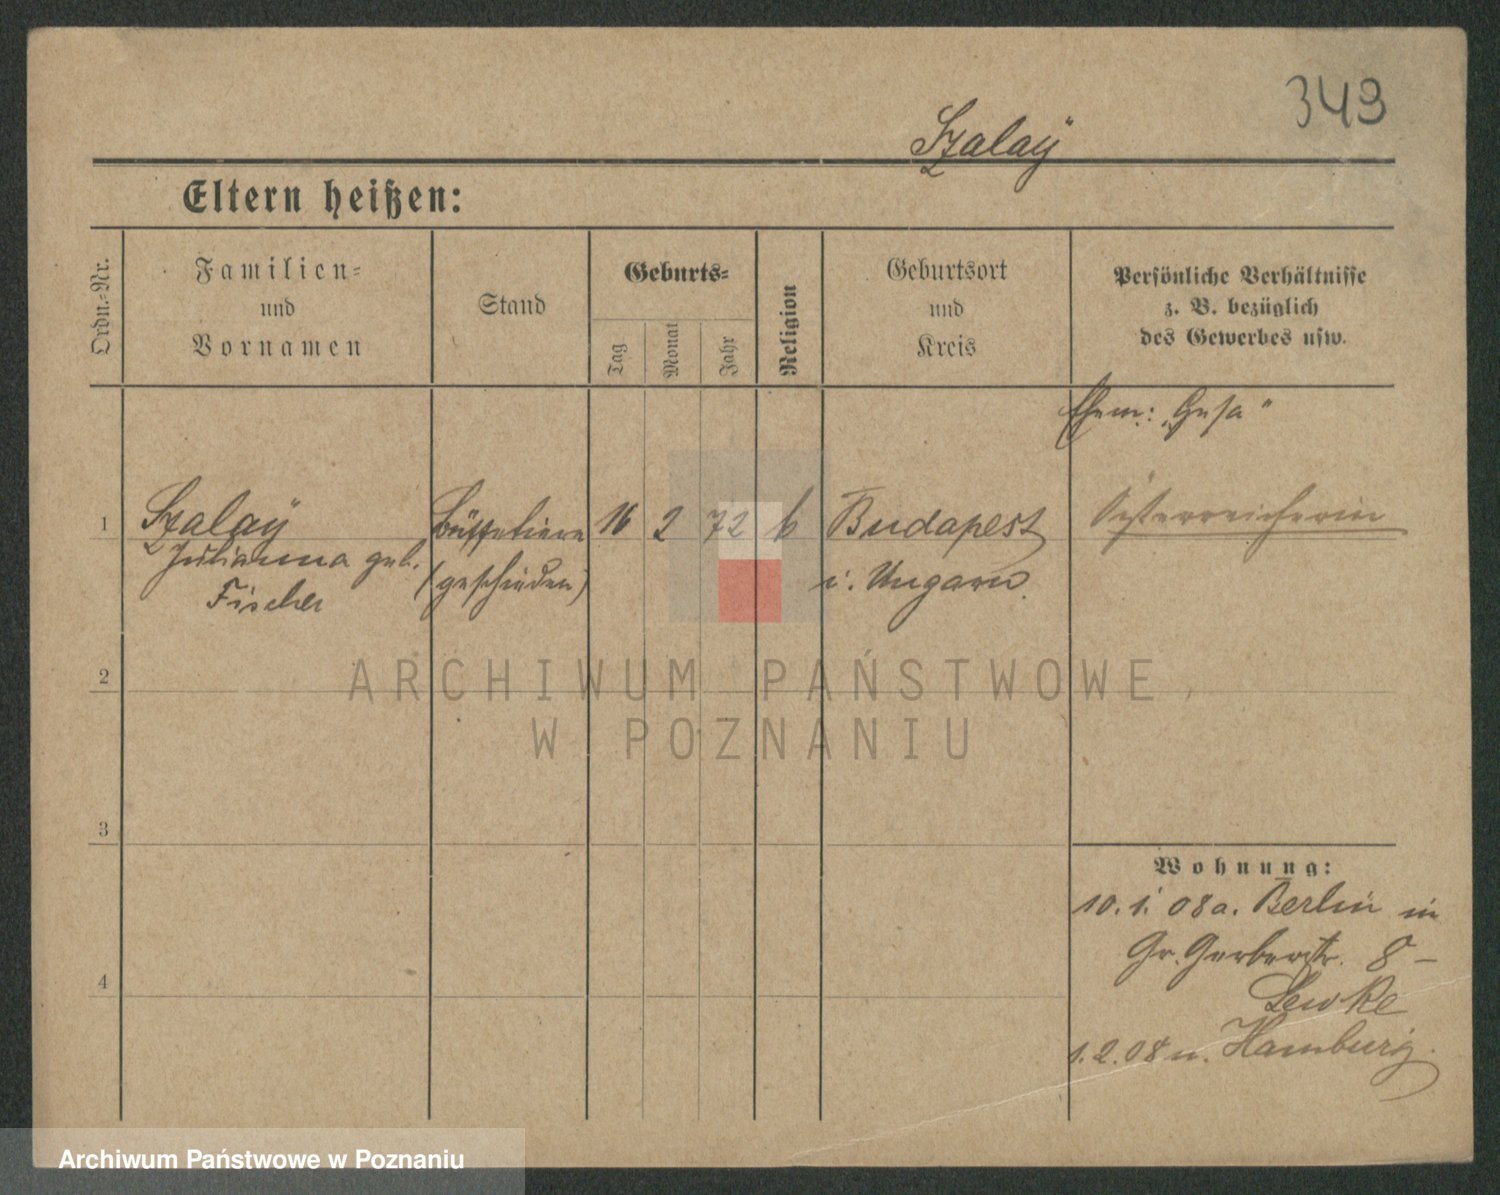 349
Szalaÿ
Eltern heißen:
Ordn.-Nr.
Familien-
und
Vornamen
Stand
Geburts-
Tag
Monat
Jahr
Religion
Geburtsort
und
Kreis
Persönliche Verhältnisse
z. B. bezüglich
des Gewerbes usw.
Ehem: „Gesa“
1 Szalaÿ Büffetiere 16 2 72 k Budapest Österreicherin
Julianna geb. (geschieden) i. Ungarn
Fischer
2
3
4
Wohnung:
10. 1. 08 a. Berlin in
Gr. Gerberstr. 8 –
1. 2. 08 n. Hamburg.
ARCHIWUM PAŃSTWOWE
W POZNANIU
Archiwum Państwowe w Poznaniu